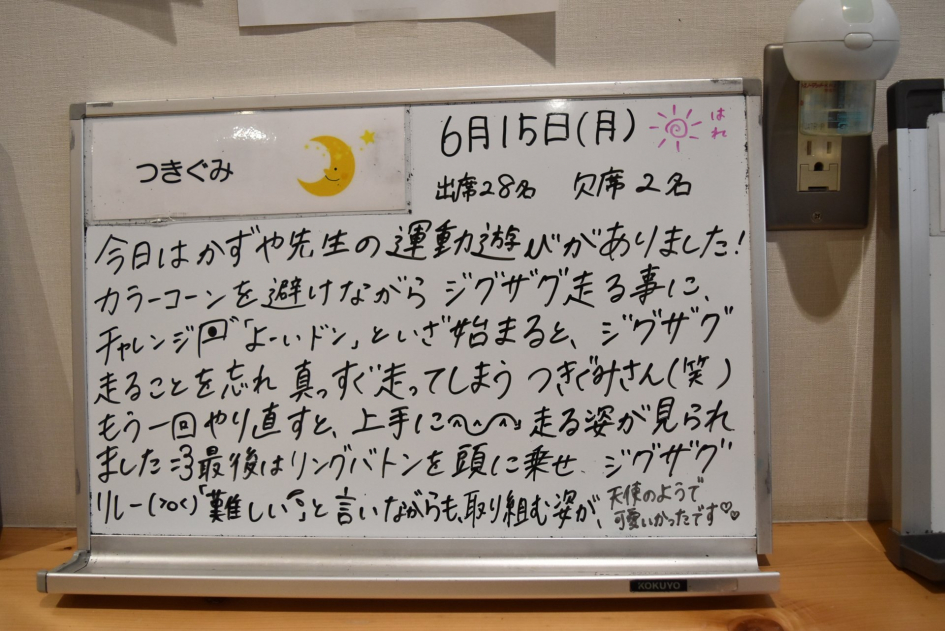 つきぐみ
6月15日(月)
はれ
出席28名 欠席2名
今日はかずや先生の運動遊びがありました!
カラーコーンを避けながら ジグザグ走る事に、
チャレンジ「よーいドン」といざ始まると、ジグザグ
走ることを忘れ 真っすぐ走ってしまう つきぐみさん(笑)
もう一回やり直すと、上手に走る姿が見られ
ました 最後はリングバトンを頭に乗せ ジグザグ
リレー「難しい」と言いながらも、取り組む姿が、
天使のようで
可愛いかったです♡♡
KOKUYO